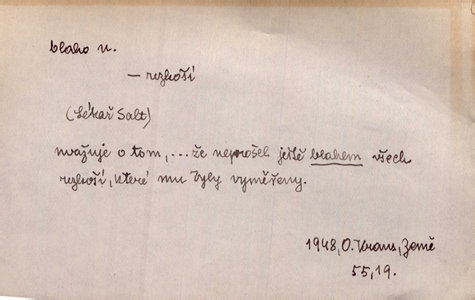 blaho n.
— rozkoší
(Lékař Salt)
uvažuje o tom,...že neprošel ještě blahem všech
rozkoší, které mu byly vyměřeny.
1948, O. Kraus, Země
55,19.